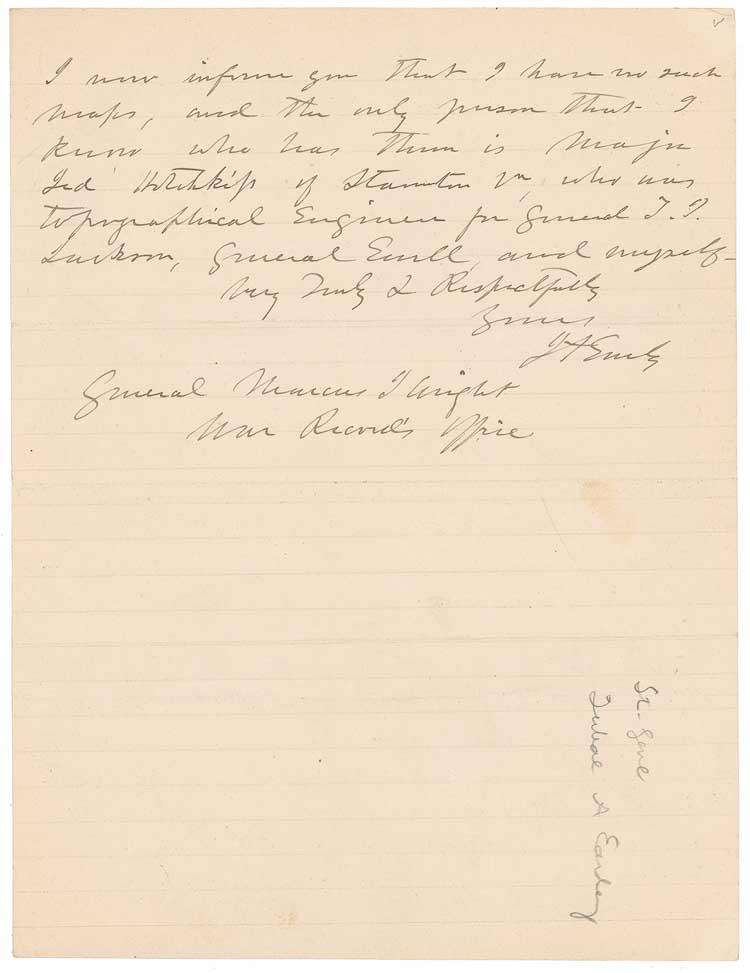 I now inform you that I have no such
maps, and the only person that I
know who has them is Major
Jed Hotchkiss of Staunton Va, who was
topographical Engineer for General T. J.
Jackson, General Ewell, and myself—
Very Truly & Respectfully
Yours
J A Early
General Marcus J Wright
War Records Office
Jubal A Early